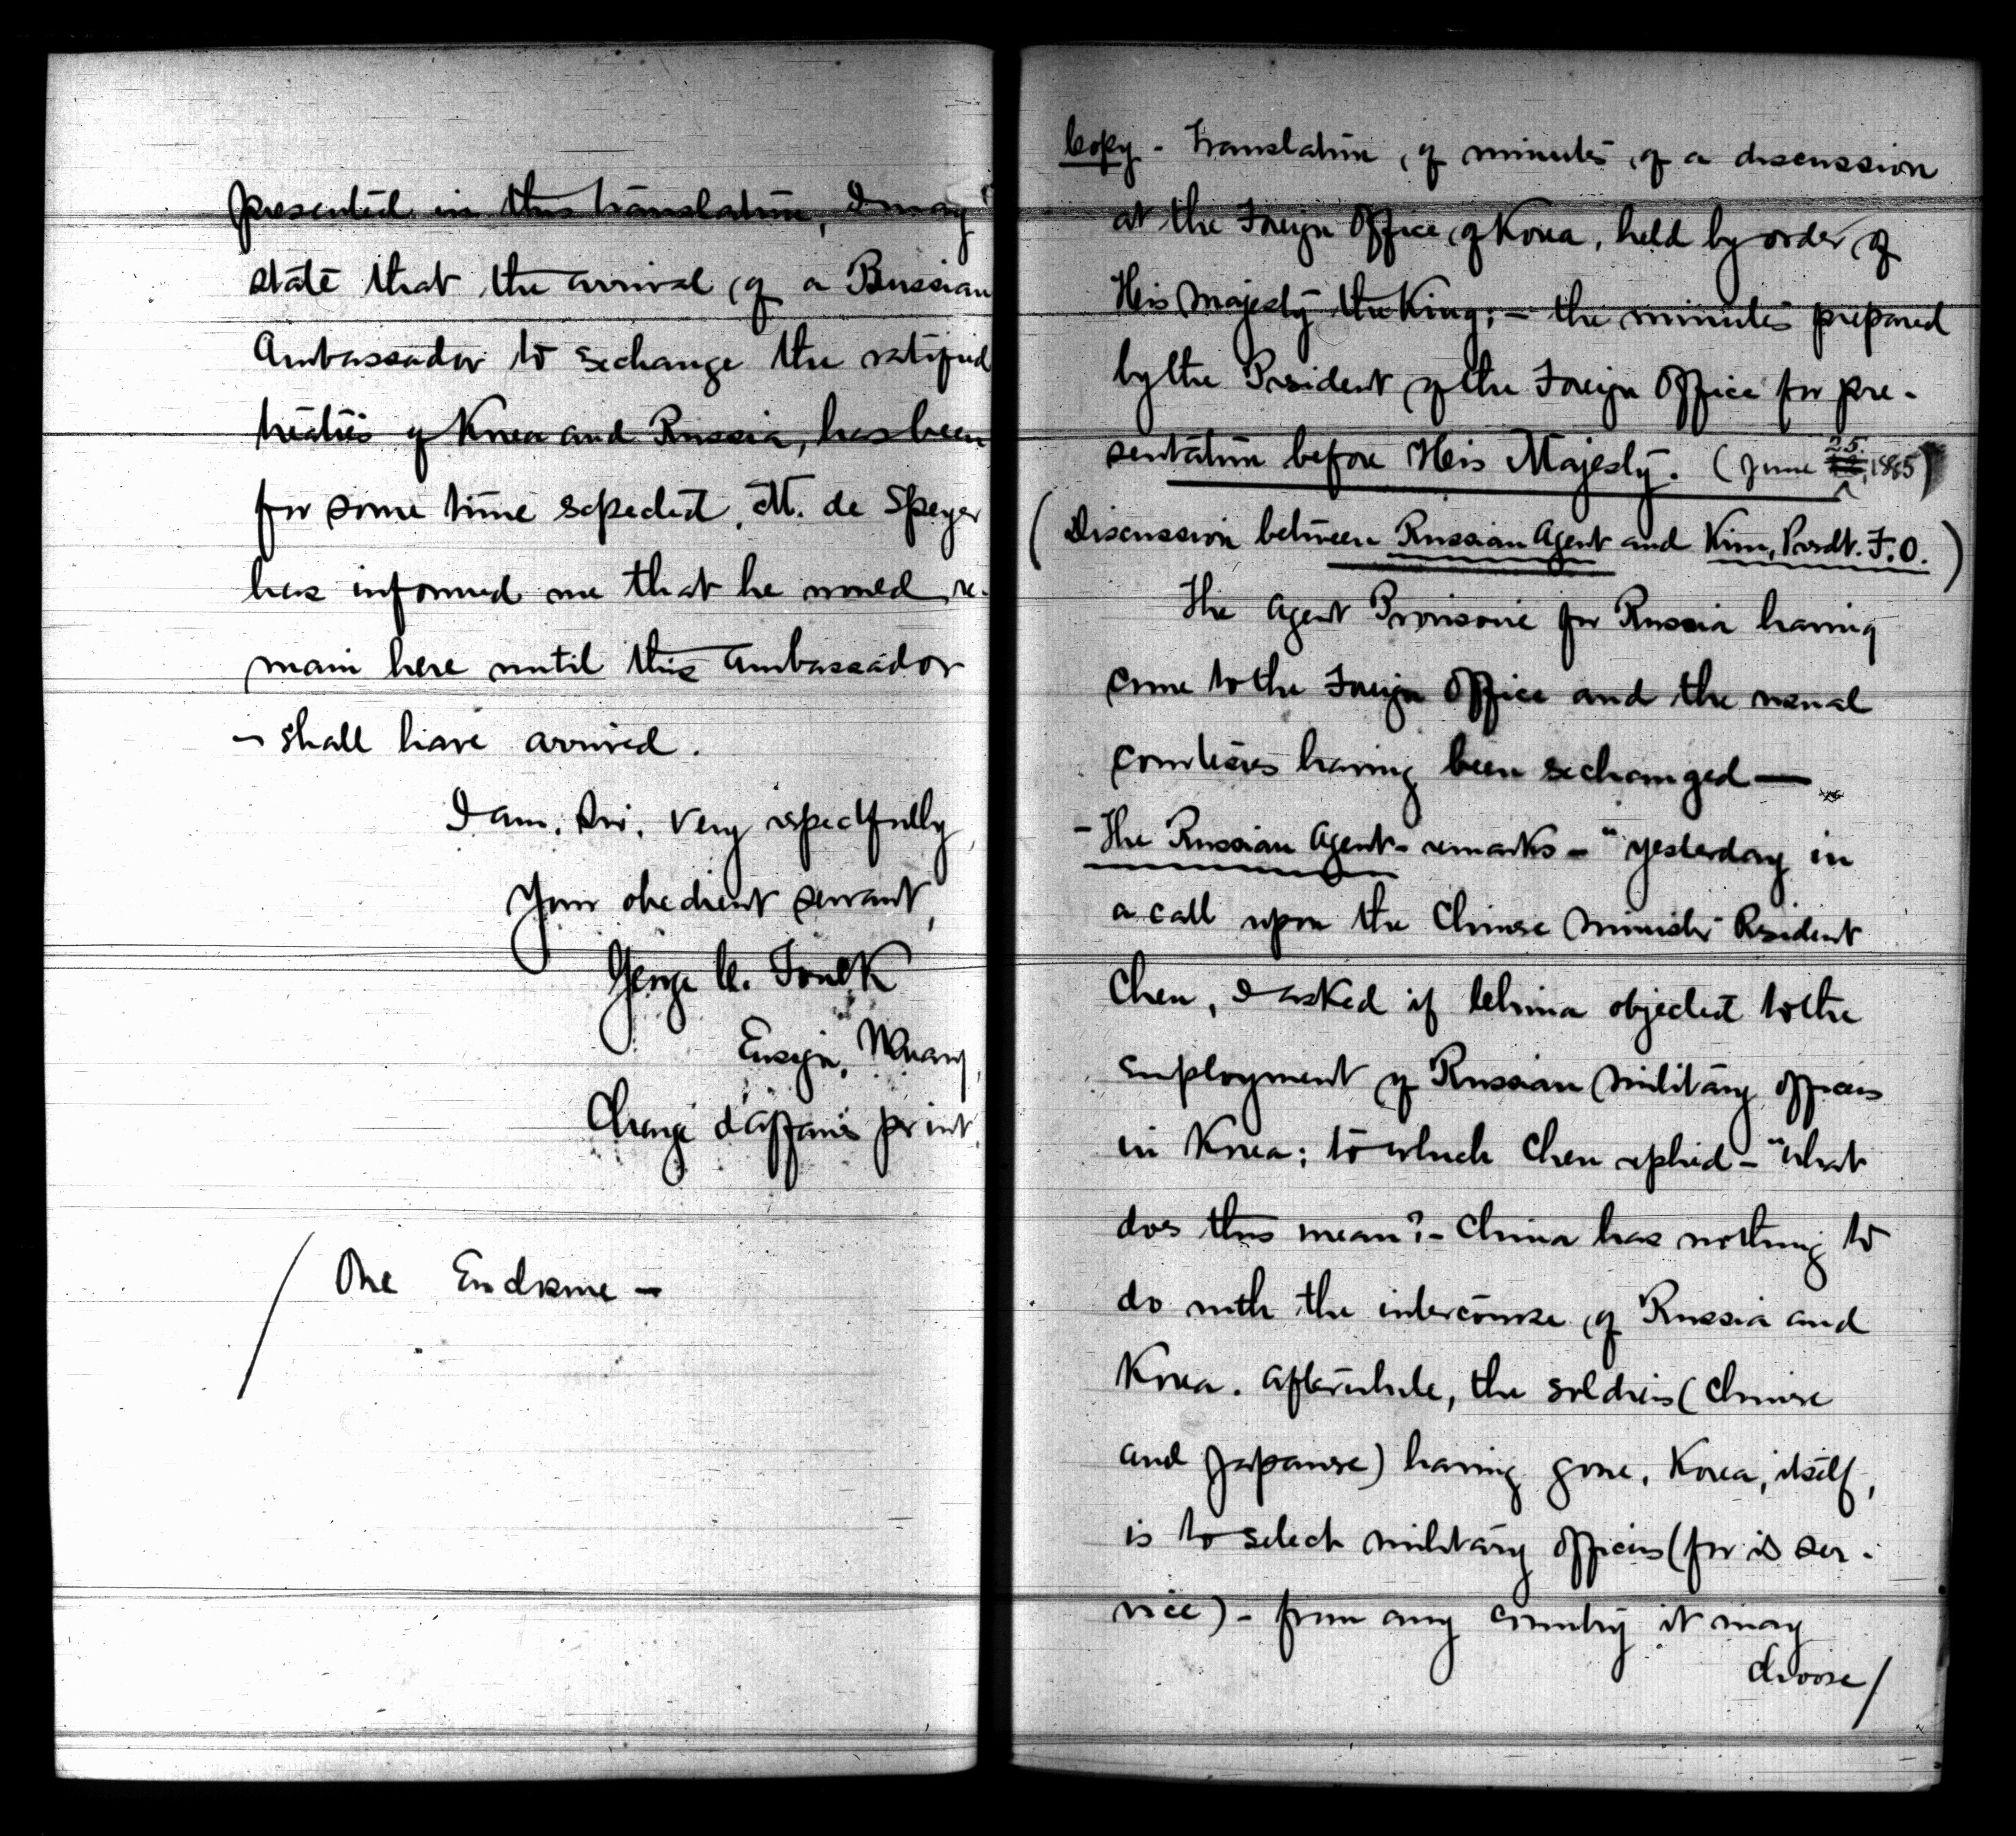 presented in this translation, I may
state that the arrival of a Russian
Ambassador to exchange the ratified
treaties of Korea and Russia, has been
for some time expected. M. de Speyer
has informed me that he would re-
main here until this Ambassador
shall have arrived.
I am, Sir, very respectfully,
Your obedient servant,
George C. Foulk
Ensign, U.S. Navy,
Chargé d'affaires pr int.
One Enclosure —
Copy - Translation, of minutes, of a discussion
at the Foreign Office of Korea, held by order of
His Majesty the King; - the minutes prepared
by the President of the Foreign Office for pre-
sentation before His Majesty. (June 25, 1885)
(Discussion between Russian Agent and Kim, Presdt. F.O.)
The Agent Provisoire for Russia having
come to the Foreign Office and the usual
courtesies having been exchanged —
- The Russian Agent - remarks - "yesterday in
a call upon the Chinese Minister Resident
Chen, I asked if China objected to the
employment of Russian military officers
in Korea; to which Chen replied - "what
does this mean? - China has nothing to
do with the intercourse of Russia and
Korea. Afterwhile, the soldiers (Chinese
and Japanese) having gone, Korea, itself,
is to select military officers (for is ser-
vice) - from any country it may
choose/